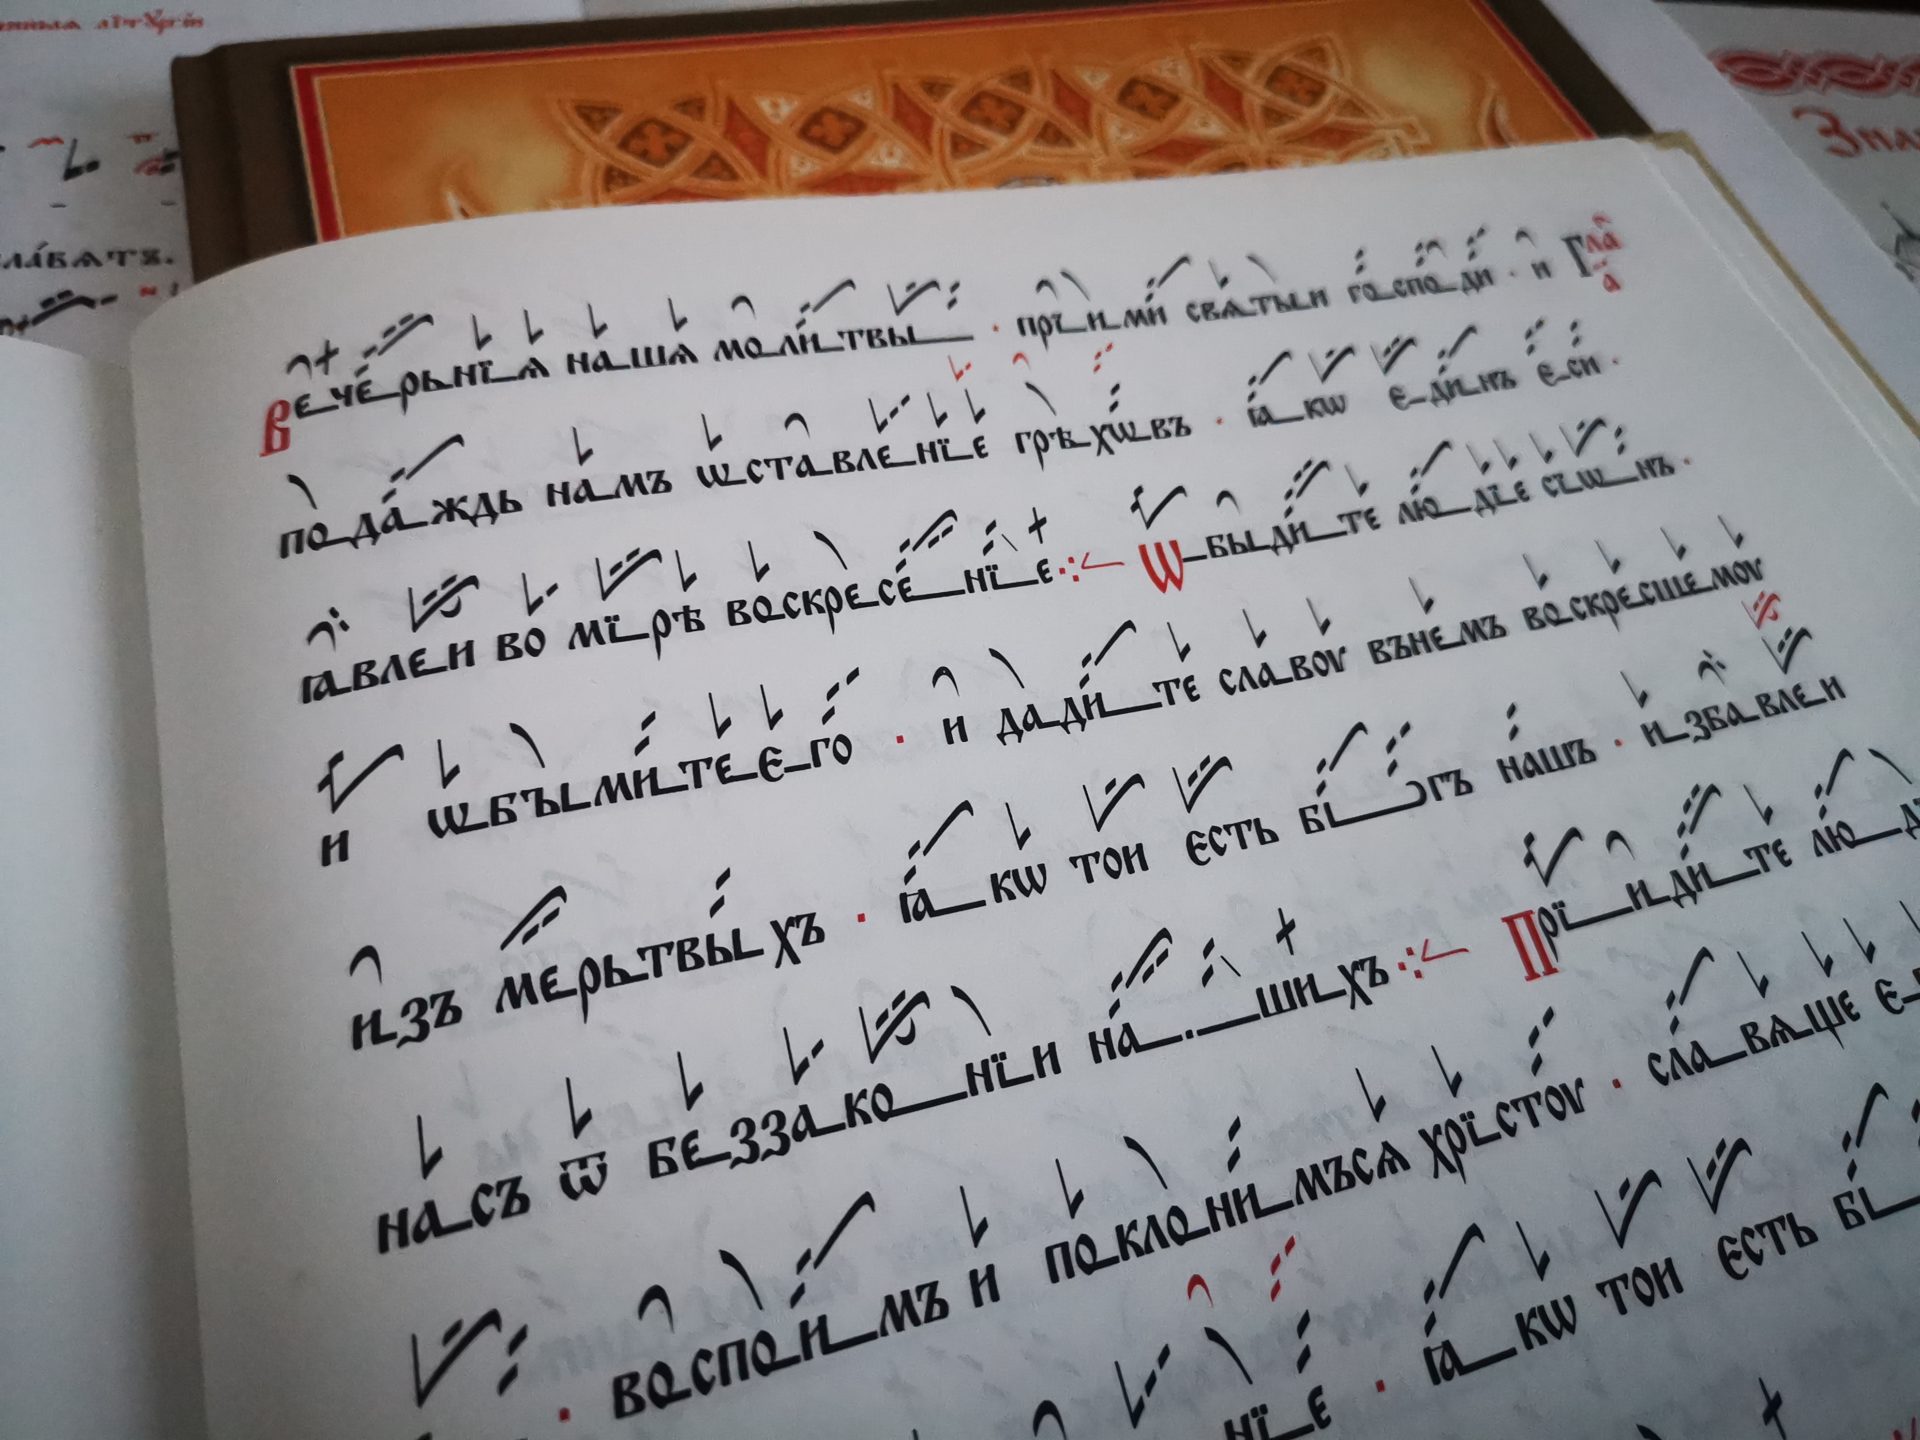 вечерьнїѧ нашѧ молитвы · прїими свѧтыи господи · и
подаждь намъ ѡставленїе грѣхѡвъ · ꙗкѡ единъ еси ·
ꙗвлеи во мїрѣ воскресенїе ⁘ Ѡбыдите людїе сїѡнъ ·
и ѡбъимите его · и дадите славоу вънемъ воскресшемоу
изъ мерьтвыхъ · ꙗкѡ тои есть богъ нашъ · избавлеи
насъ ѿ беззаконїи нашихъ ⁘ Прїидите лю
воспоимъ и поклонимъсѧ хрїстоу · славѧще
нїе · ꙗкѡ тои есть